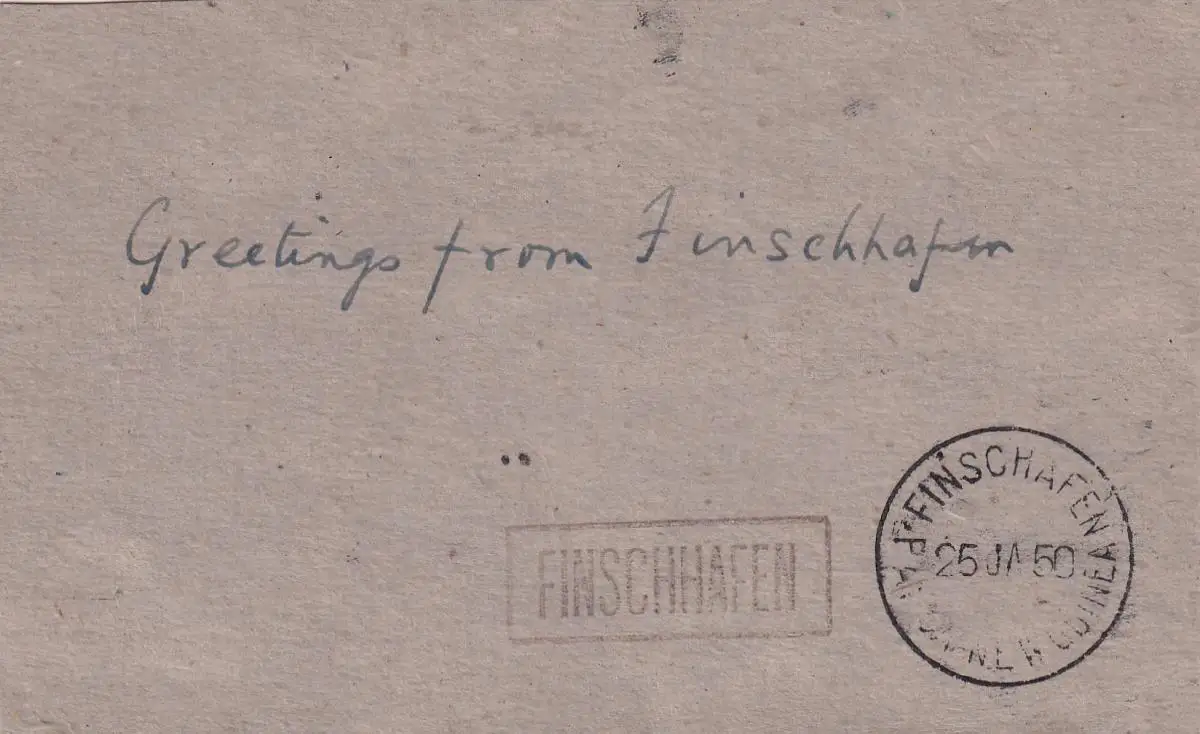 Greetings from Finschhafen
FINSCHHAFEN
FINSCHAFEN
25 JA 50
NEW GUINEA